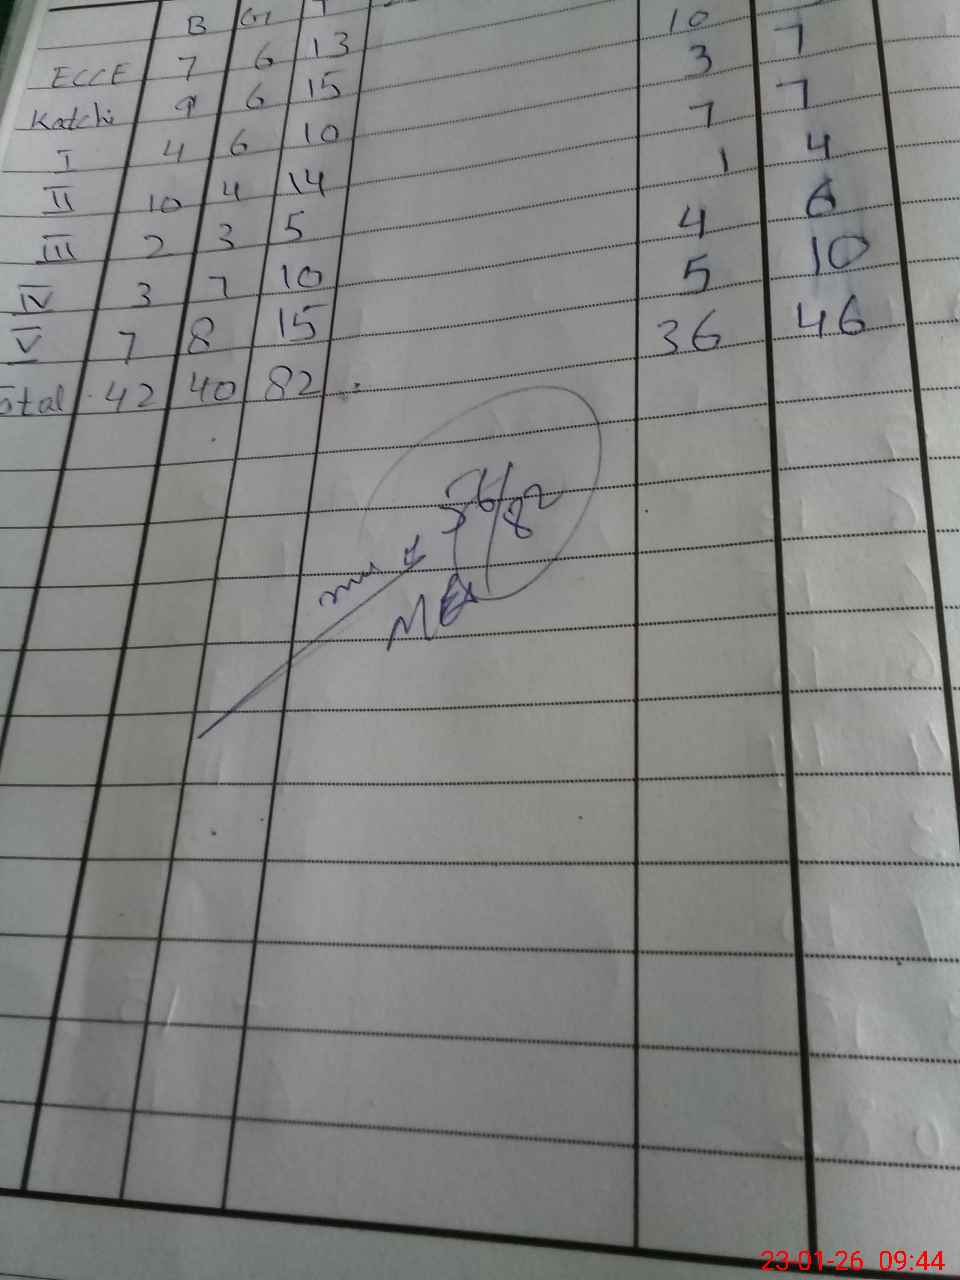 B G T
ECCE 7 6 13
Katchi 9 6 15 10
I 4 6 10 3 7
II 10 4 14 7 7
III 2 3 5 1 4
IV 3 7 10 4 6
V 7 8 15 5 10
Total 42 40 82 36 46
36/82
23-01-26 09:44